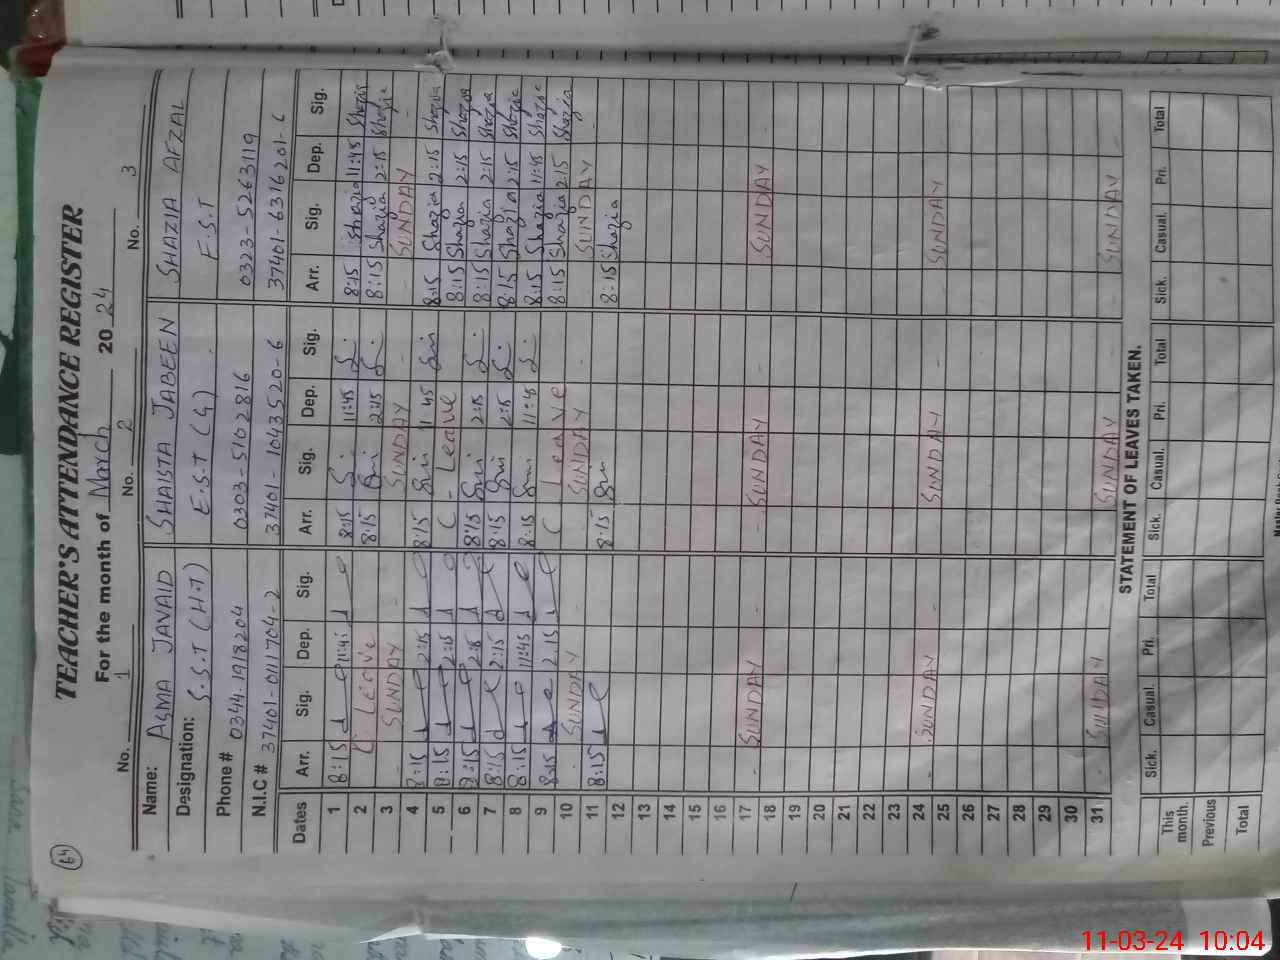 64
TEACHER'S ATTENDANCE REGISTER
For the month of March 20 24
No. 1 No. 2 No. 3
Name: ASMA JAVAID SHAISTA JABEEN SHAZIA AFZAL
Designation: S.S.T (H.T) E.S.T (G) E.S.T
Phone # 0344-1918204 0303-5102816 0323-5263119
N.I.C # 37401-0111704-2 37401-1043520-6 37401-6316201-6
Dates Arr. Sig. Dep. Sig. Arr. Sig. Dep. Sig. Arr. Sig. Dep. Sig.
1 8:15 11:45 8:15 S. 11:45 S. 8:15 Shazia 11:45 Shazia
2 C Leave 8:15 2:15 S. 8:15 Shazia 2:15 Shazia
3 SUNDAY SUNDAY SUNDAY
4 8:15 2:15 8:15 1:45 8:15 Shazia 2:15 Shazia
5 8:15 2:15 C - Leave 8:15 Shazia 2:15 Shazia
6 8:15 8:15 2:15 S. 8:15 Shazia 2:15 Shazia
7 8:15 2:15 8:15 2:15 S. 8:15 Shazia 2:15 Shazia
8 8:15 11:45 8:15 11:45 S. 8:15 Shazia 11:45 Shazia
9 8:15 2:15 C Leave 8:15 Shazia 2:15 Shazia
10 SUNDAY SUNDAY SUNDAY
11 8:15 8:15 8:15 Shazia
12
13
14
15
16
17 SUNDAY SUNDAY SUNDAY
18
19
20
21
22
23
24 SUNDAY SUNDAY SUNDAY
25
26
27
28
29
30
31 SUNDAY SUNDAY SUNDAY
STATEMENT OF LEAVES TAKEN.
Sick. Casual. Pri. Total Sick. Casual. Pri. Total Sick. Casual. Pri. Total
This month.
Previous
Total
11-03-24 10:04